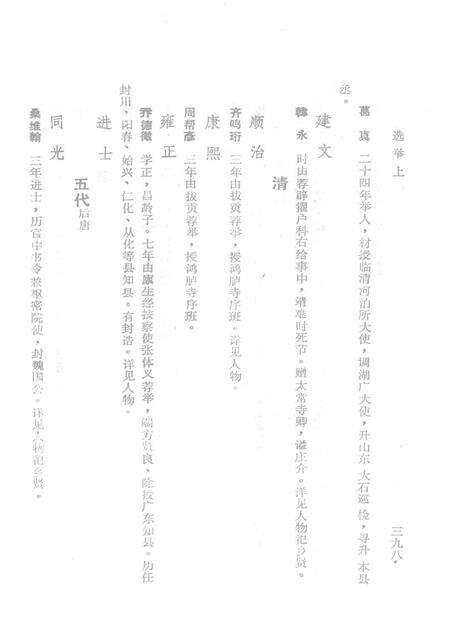 选举上 三九八
葛真 二十四年举人，材授临清河泊所大使，调湖广大使，升山东大石巡检，寻升本县
丞。
建文
韩永 时由荐辟擢户科右给事中，靖难时死节。赠太常寺卿，谥庄介。详见人物祀乡贤。
清
顺治
齐鸣珩 三年由拔贡荐举，授鸿胪寺序班。详见人物。
康熙
周帮彦 三年由拔贡荐举，授鸿胪寺序班。
雍正
乔德徽 学正，昌龄子。七年由廪生经按察使张体义荐举，端方贤良，除授广东知县。历任
封川、阳春、始兴、仁化、从化等县知县。有封浩。详见人物。
进士
五代后唐
同光
桑维翰 三年进士，历官中书令兼枢密院使，封魏国公。详见人物祀乡贤。